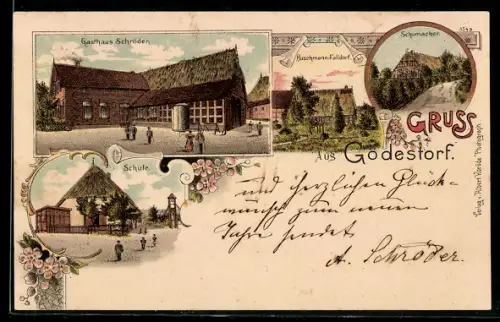 Gasthaus Schröder.
Huschmann-Falldorf.
Schumacher.
GRUSS
Aus Godestorf.
Schule.
und herzlichen Glück-
wunsch zum neuen
Jahre sendet
A. Schröder.
Verlag v.
Photograph.